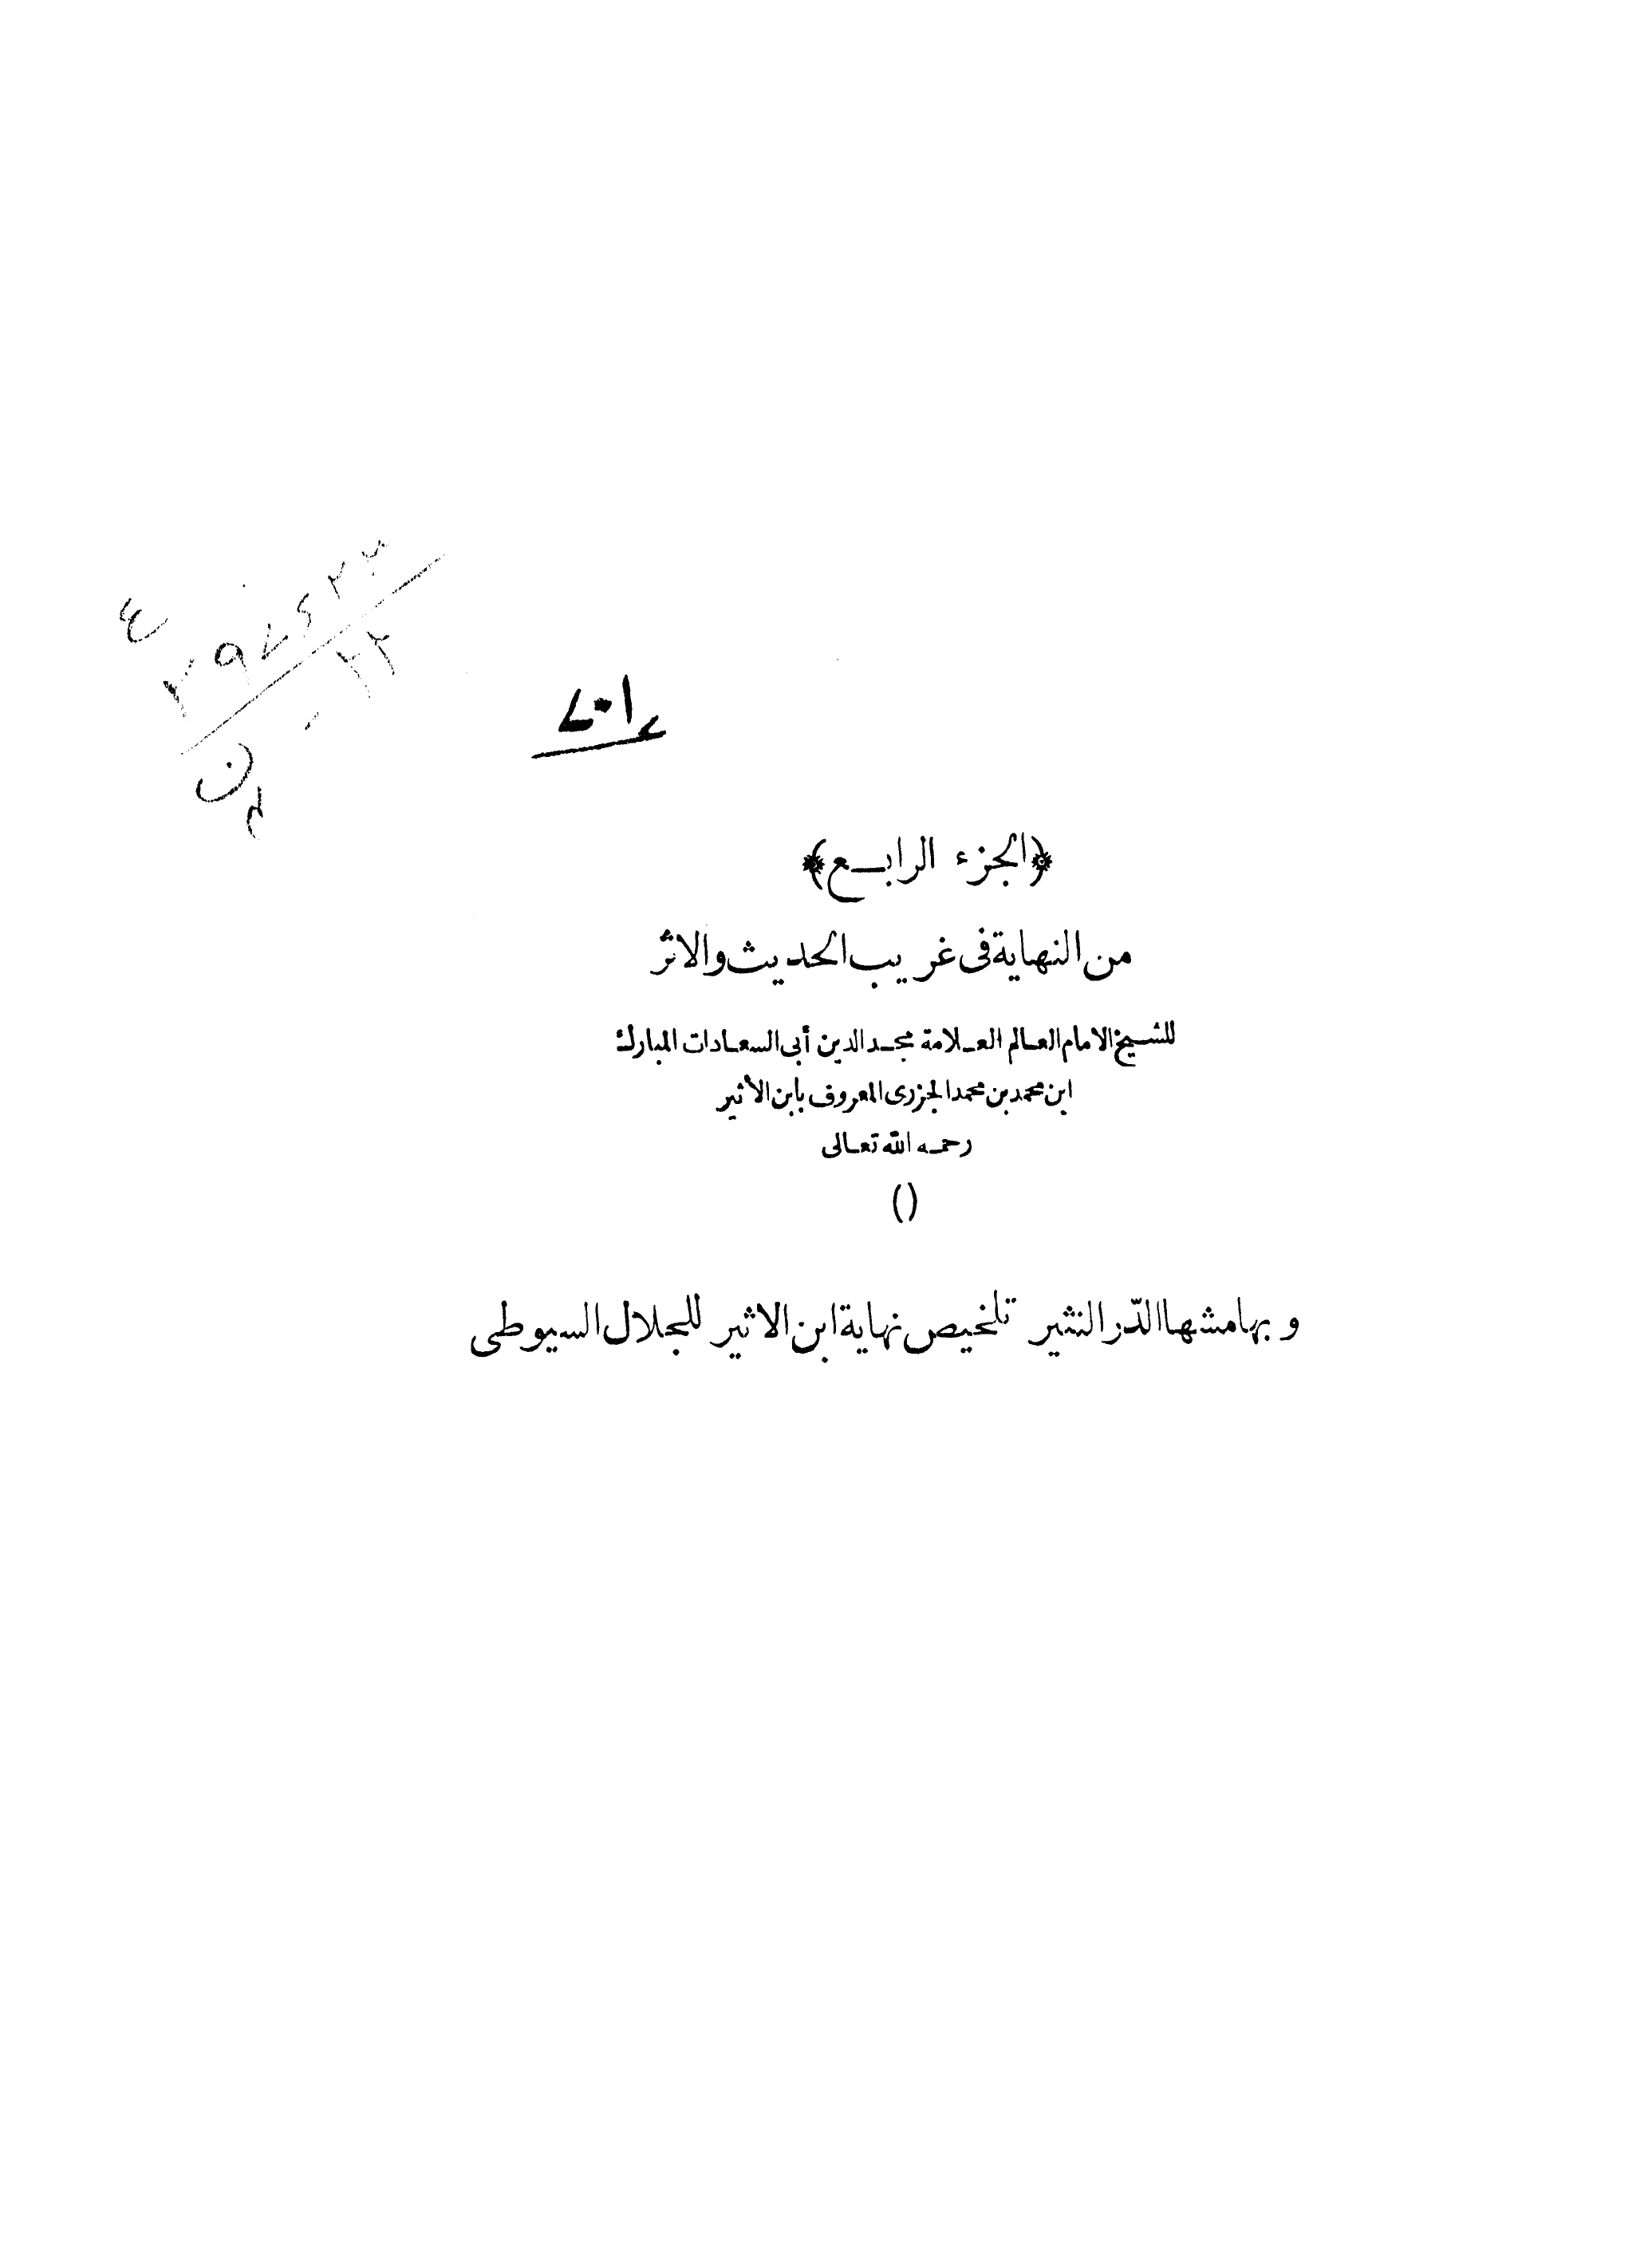 ﴿الجزء الرابع﴾
من النهاية فى غريب الحديث والاثر
للشيخ الامام العالم العلامة مجد الدين أبى السعادات المبارك
ابن محمد بن محمد الجزرى المعروف بابن الأثير
رحمه الله تعالى
()
وبهامشها الدّر النثير تلخيص نهاية ابن الاثير للجلال السيوطى